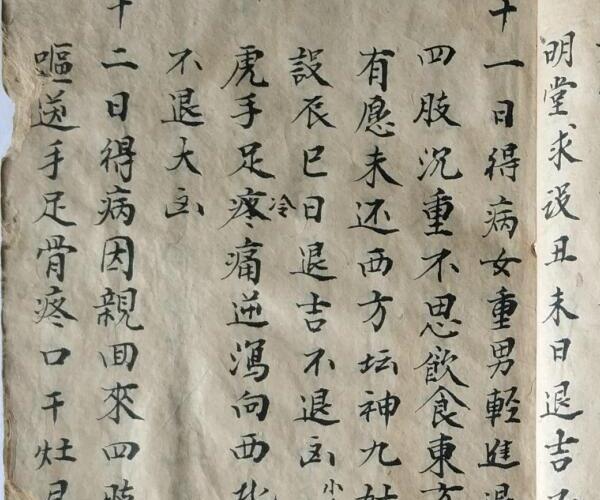 明堂求设丑未日退吉
十一日得病女重男輕進退
四肢沉重不思飲食東方
有愿未还西方坛神九姑
設辰巳日退吉不退凶小
虎手足疼冷痛逆瀉向西北
不退大凶
十二日得病因親回來四肢
嘔送手足骨疼口干灶